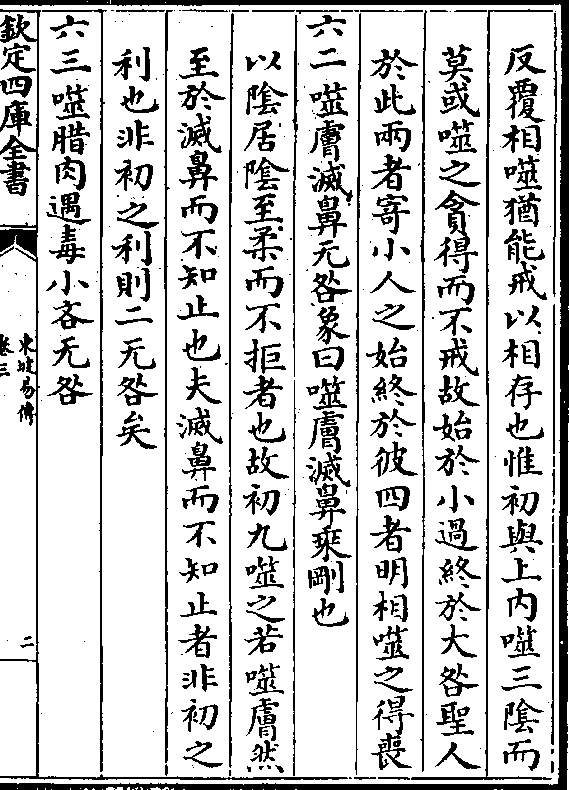 反覆相噬猶能戒以相存也惟初與上内噬三陰而
莫或噬之貪得而不戒故始於小過終於大咎聖人
於此兩者寄小人之始終於彼四者明相噬之得喪
六二噬膚滅鼻无咎象曰噬膚滅鼻乘剛也
以陰居陰至柔而不拒者也故初九噬之若噬膚然
至於滅鼻而不知止也夫滅鼻而不知止者非初之
利也非初之利則二无咎矣
六三噬腊肉遇毒小吝无咎
欽定四庫全書
東坡易傳
卷三
二